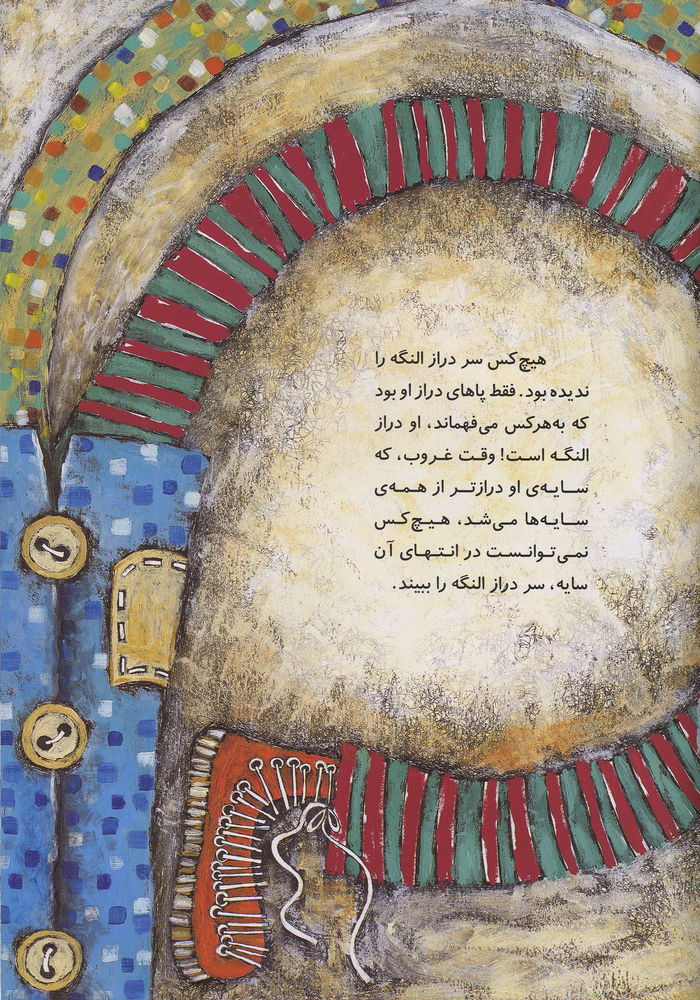 هیچ‌کس سر دراز النگه را
ندیده بود. فقط پاهای دراز او بود
که به‌هرکس می‌فهماند، او دراز
النگه است! وقت غروب، که
سایه‌ی او درازتر از همه‌ی
سایه‌ها می‌شد، هیچ‌کس
نمی‌توانست در انتهای آن
سایه، سر دراز النگه را ببیند.